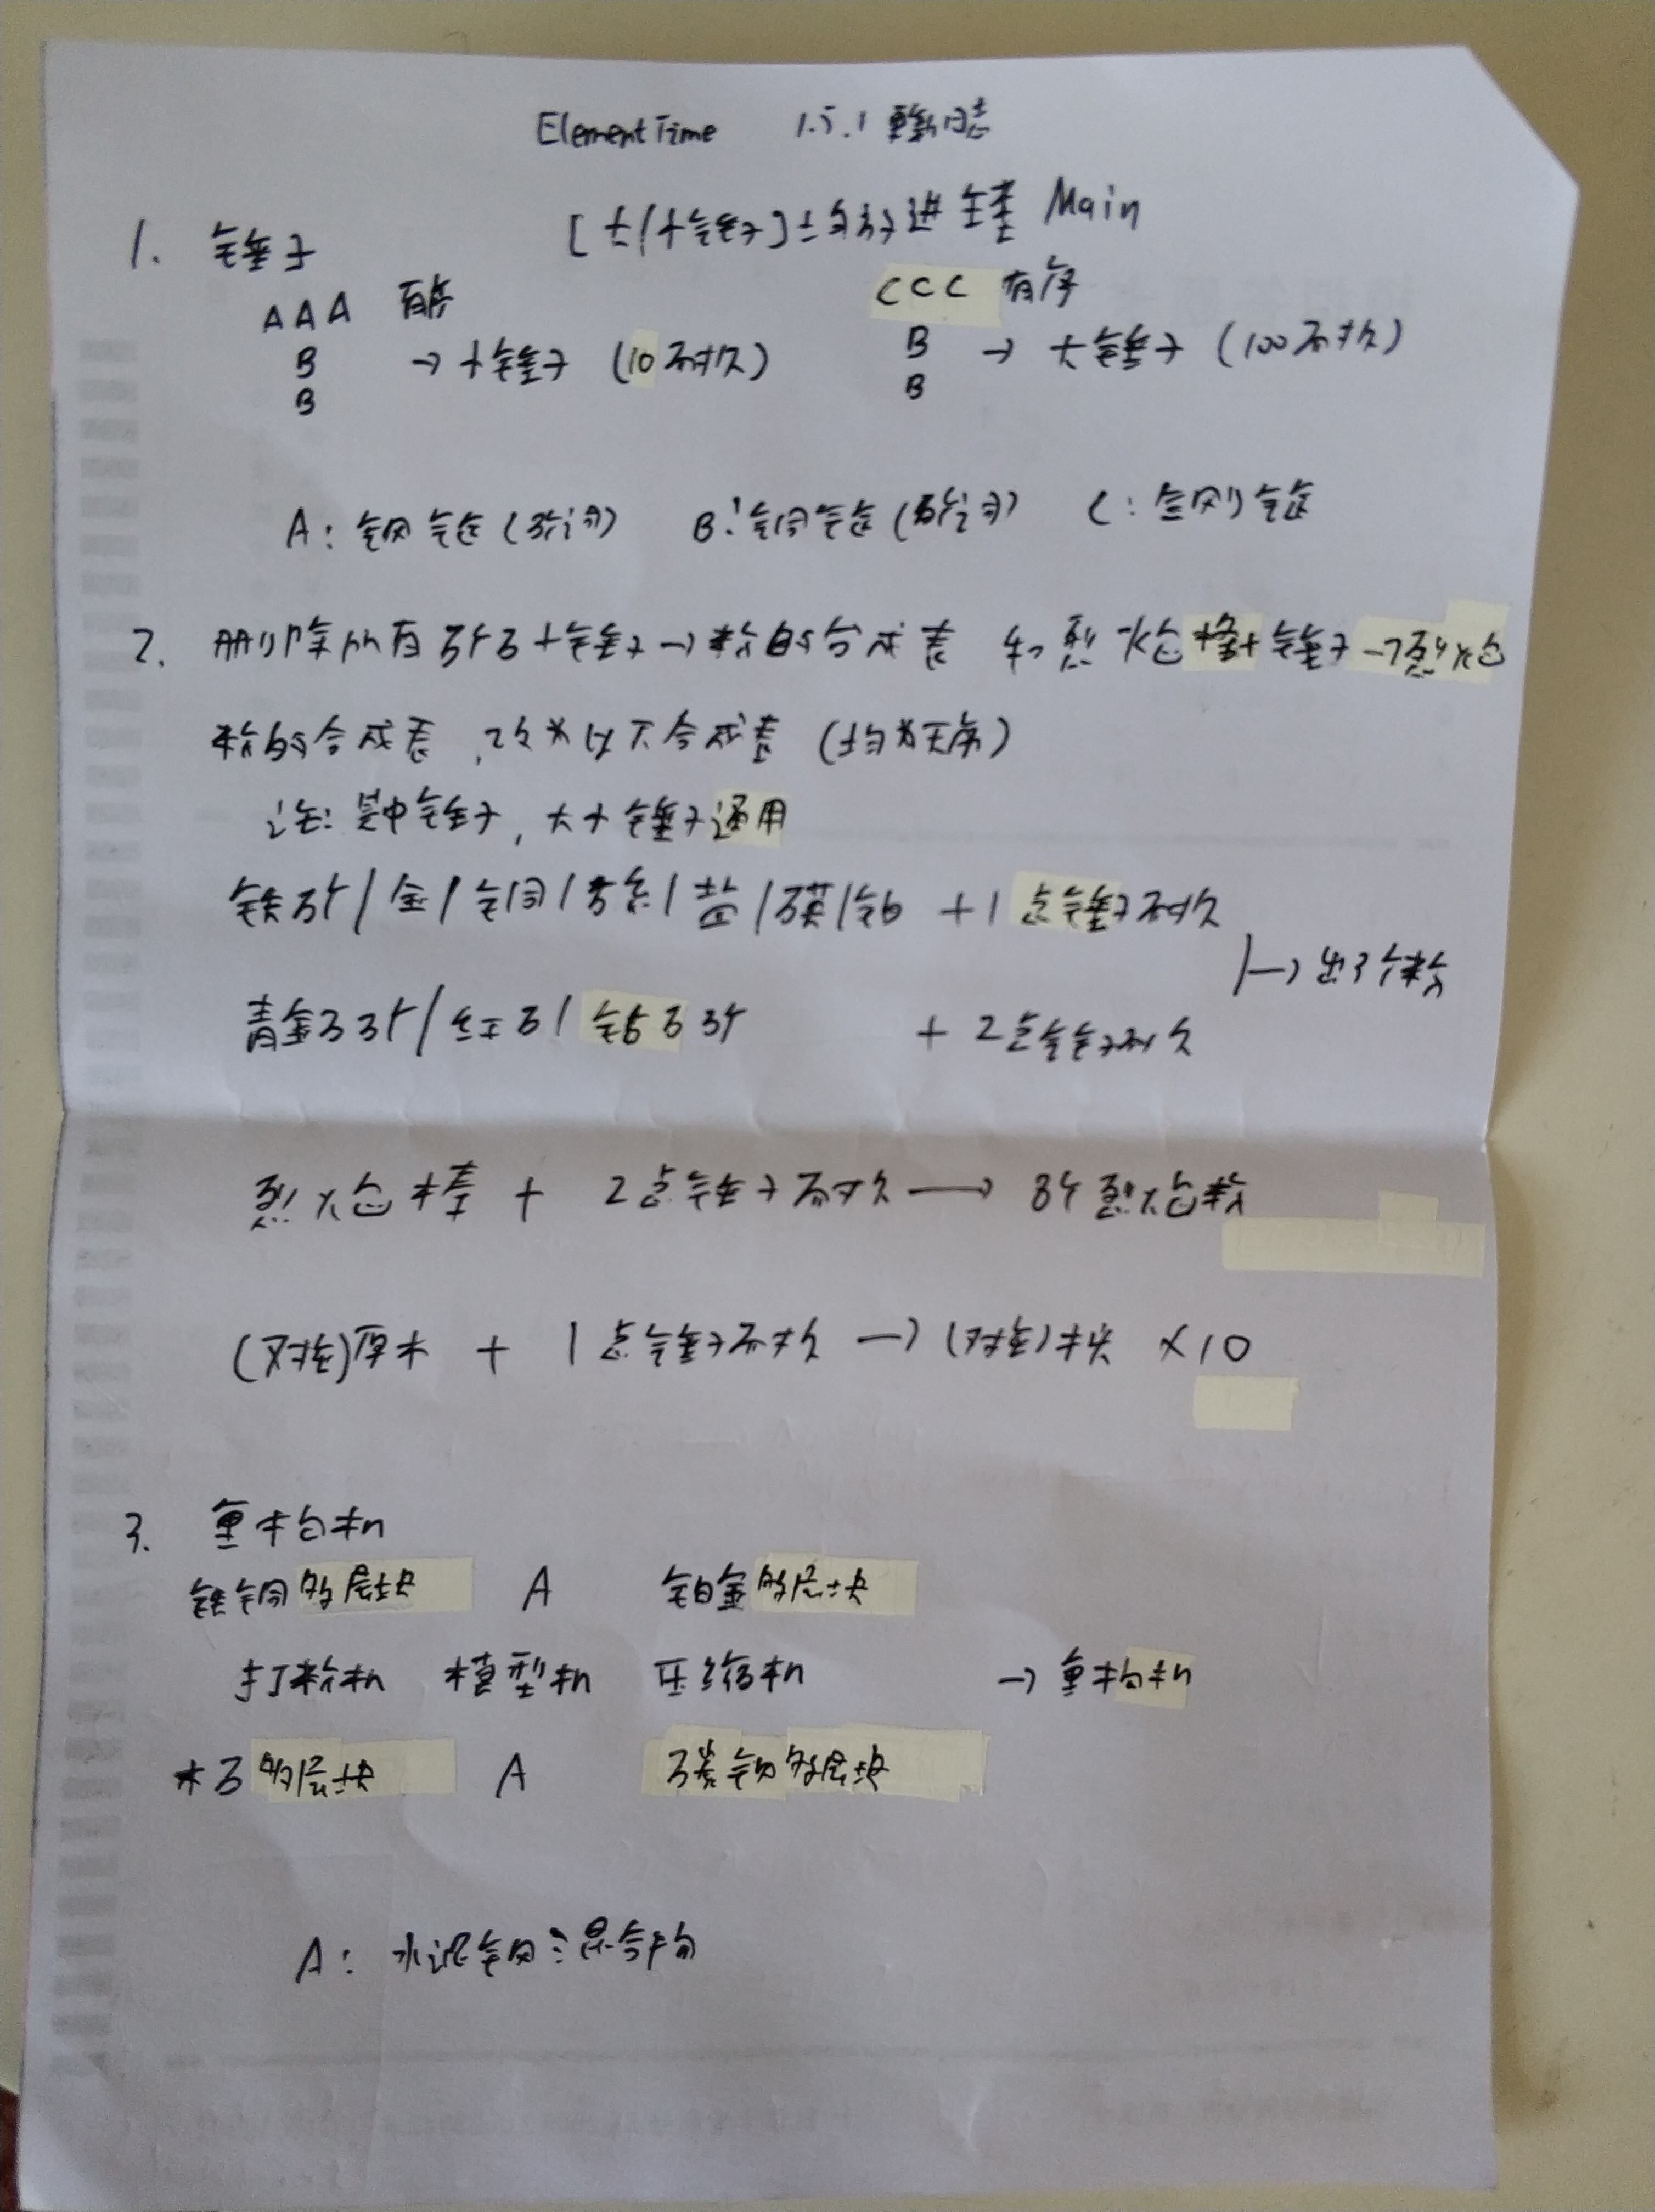 ElementTime 1.5.1 更新日志
1. 锤子 [大/小锤子]均放进 Main
AAA 有序 CCC 有序
B → 小锤子 (10耐久) B → 大锤子 (100耐久)
B B
A: 钢锭 B: 铜锭 C: 金刚锭
2. 删除所有矿石+锤子→粉的合成表 和烈焰棒+锤子→烈焰
粉的合成表,改为以下合成表 (均为无序)
注: 其中锤子, 大小锤子通用
铁矿/金/铜/ /盐/ /铂 +1点锤子耐久
→出3个粉
青金石矿/红石/钻石矿 + 2点锤子耐久
烈焰棒 + 2点锤子耐久 → 8个烈焰粉
(对应)原木 + 1点锤子耐久 → (对应)木板 ×10
3. 重构机
铁铜多层块 A 铂金多层块
打粉机 模型机 压缩机 → 重构机
木石多层块 A 多层块
A: 水泥钢混合物